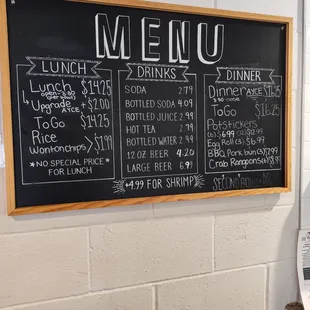 MENU
LUNCH
Lunch $14.25
open-3:30
Upgrade +$2.00
AYCE
ToGo $14.25
Rice
Wontonchips $1.99
*NO SPECIAL PRICE
FOR LUNCH
DRINKS
SODA 2.79
BOTTLED SODA 4.09
BOTTLED JUICE 2.99
HOT TEA 2.79
BOTTLED WATER 2.99
12 OZ BEER 4.20
LARGE BEER 6.99
+4.99 FOR SHRIMP
DINNER
Dinner AYCE
3:30-close
ToGo $16.25
Potstickers
Egg Roll
BBQ Pork bun
Crab Rangoons
SECOND